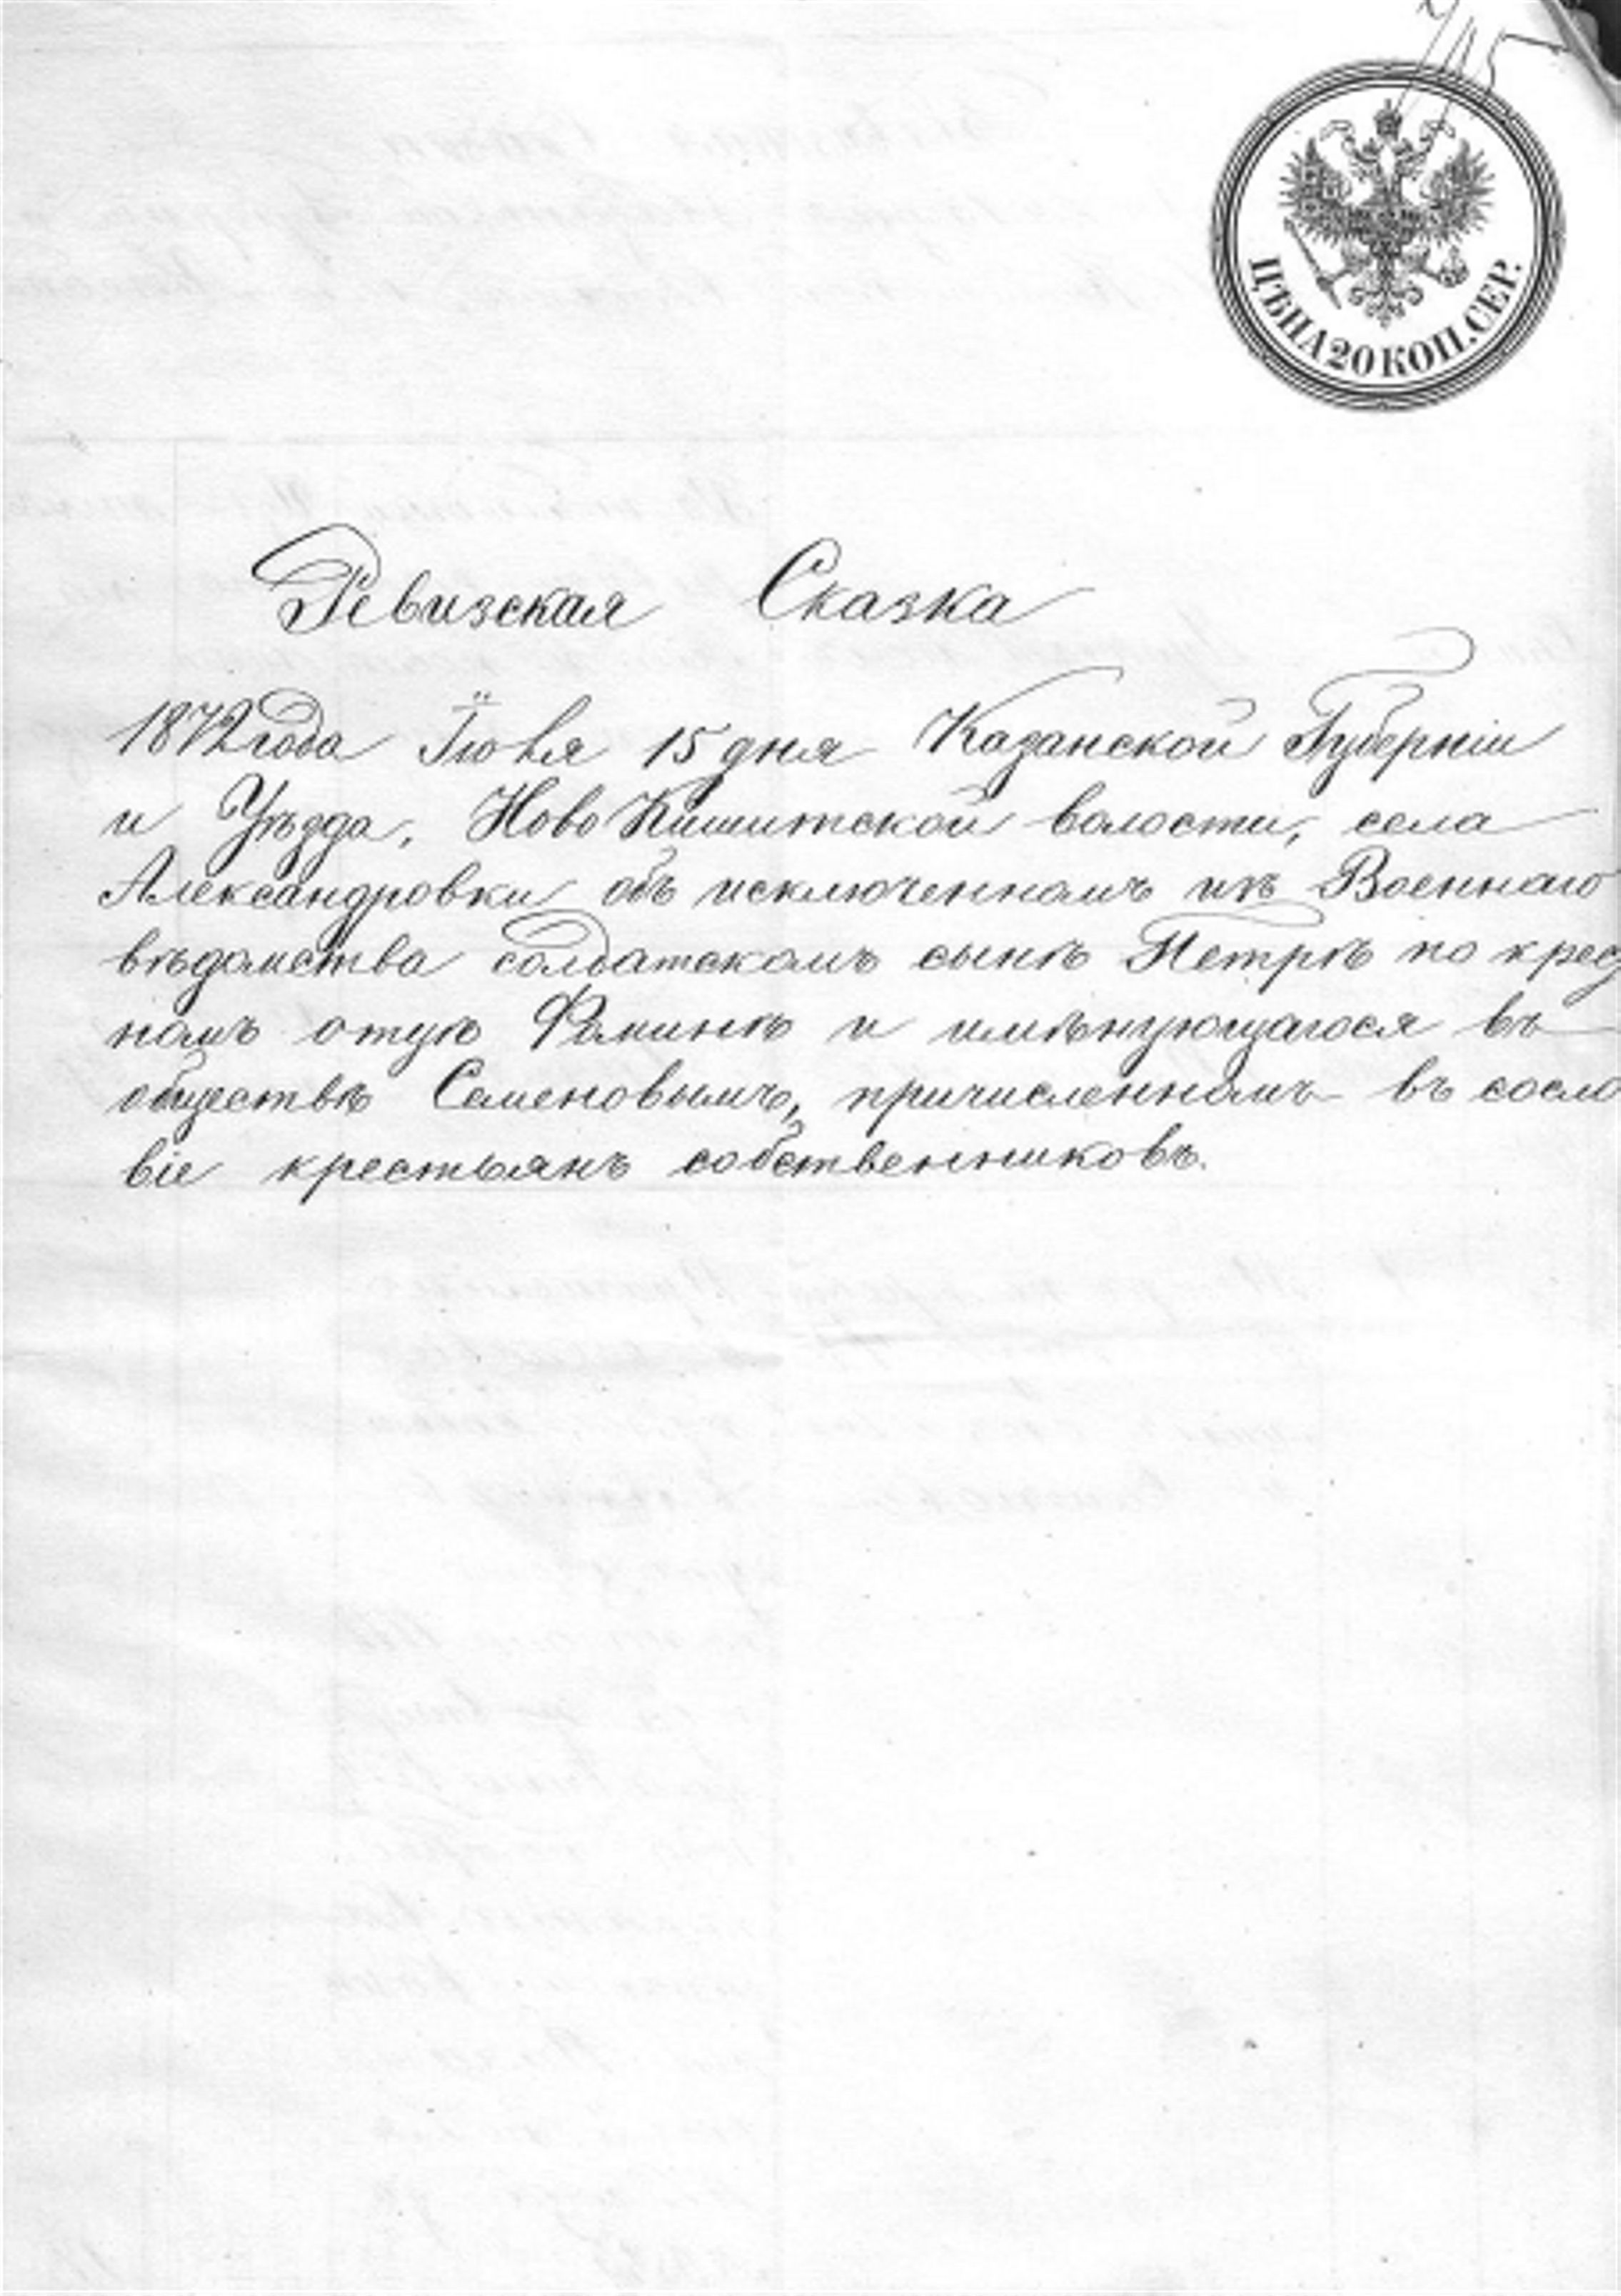 ЦѢНА 20 КОП. СЕР.
Ревизская Сказка
1872 года Іюня 15 дня Казанской Губерніи
и Уѣзда, Ново Кишитской волости, села
Александровки объ исключенномъ изъ Военнаго
вѣдомства солдатскомъ сынѣ Петрѣ по крес
номъ отцѣ Фоминѣ и имѣнующагося въ
обществѣ Семеновымъ, причисленномъ въ сосло
віе крестьянъ собственниковъ.